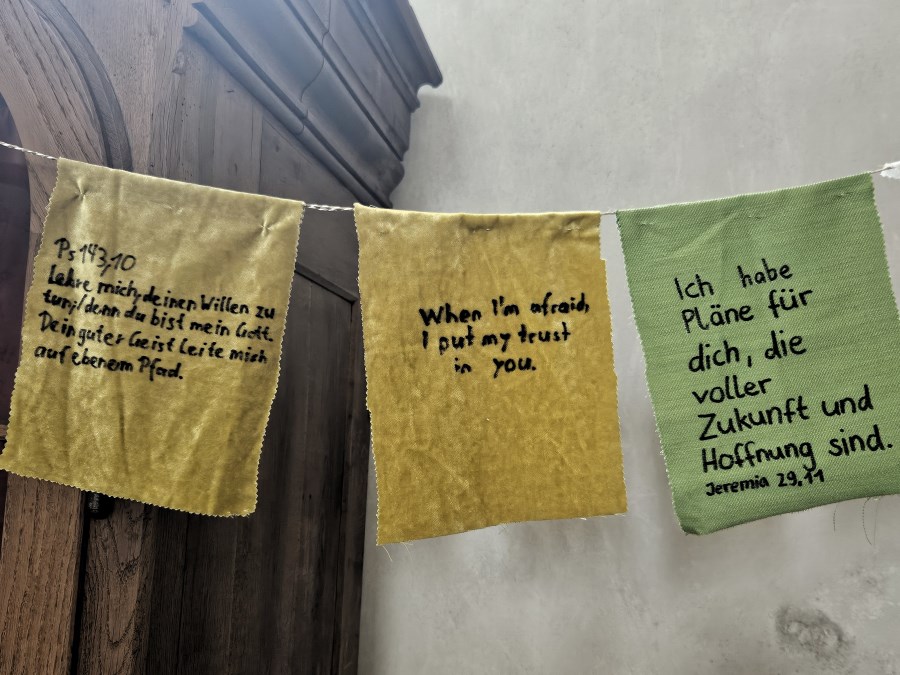 Ps 143,10
Lehre mich, deinen Willen zu
tun; denn du bist mein Gott.
Dein guter Geist leite mich
auf ebenem Pfad.
When I'm afraid,
I put my trust
in you.
Ich habe
Pläne für
dich, die
voller
Zukunft und
Hoffnung sind.
Jeremia 29,11